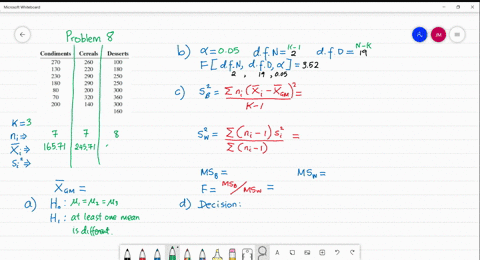 Microsoft Whiteboard
Problem 8
Condiments Cereals Desserts
270 260 100
130 220 180
230 290 250
180 290 250
80 200 300
70 320 360
200 140 300
160
K = 3
ni ⇒ 7 7 8
X̄i ⇒ 165.71 245.71
Si² ⇒
X̄GM =
a) H₀ : μ₁ = μ₂ = μ₃
H₁ : at least one mean is different.
b) α = 0.05 d.f.N = K-1 2 d.f.D = N-K 19
F [d.f.N, d.f.D, α] = 3.52
2, 19, 0.05
c) S²B = Σ ni (X̄i - X̄GM)² / K-1 =
S²W = Σ (ni - 1) Si² / Σ (ni - 1) =
MSB = MSW =
F = MSB / MSW =
d) Decision: